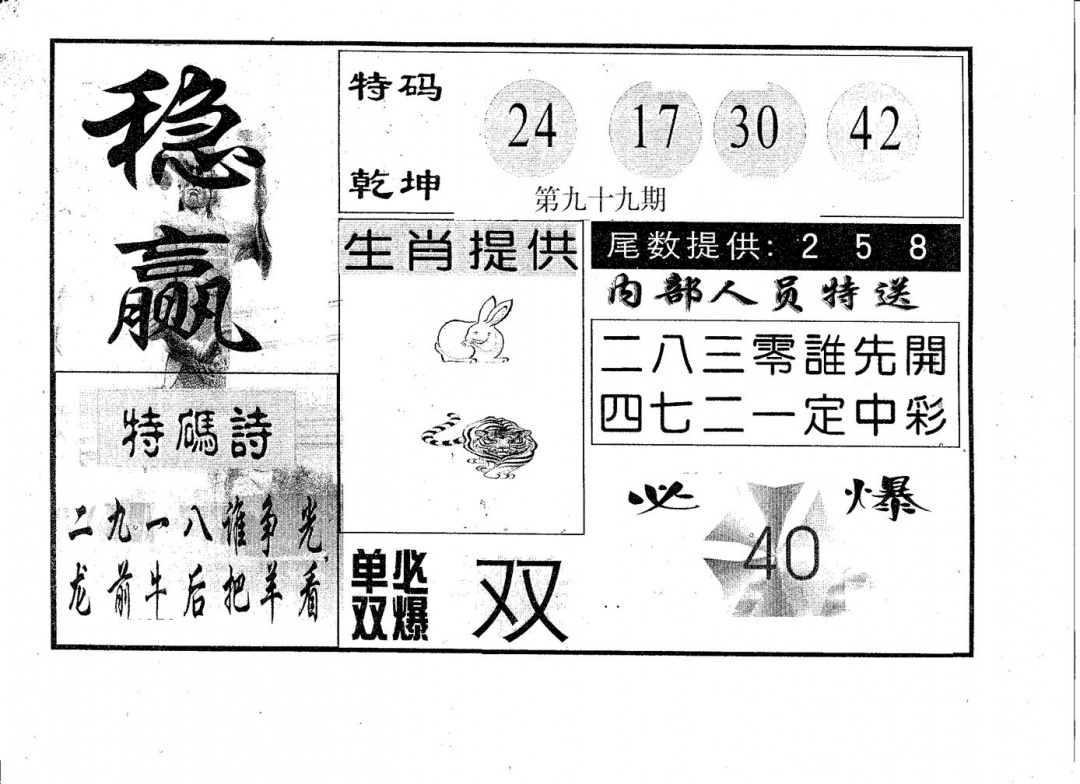 稳赢
特码诗
二九一八谁争光
龙前牛后把羊看
特码
乾坤
24 17 30 42
第九十九期
生肖提供
单双
必爆
双
尾数提供: 2 5 8
内部人员特送
二八三零誰先開
四七二一定中彩
必爆
40